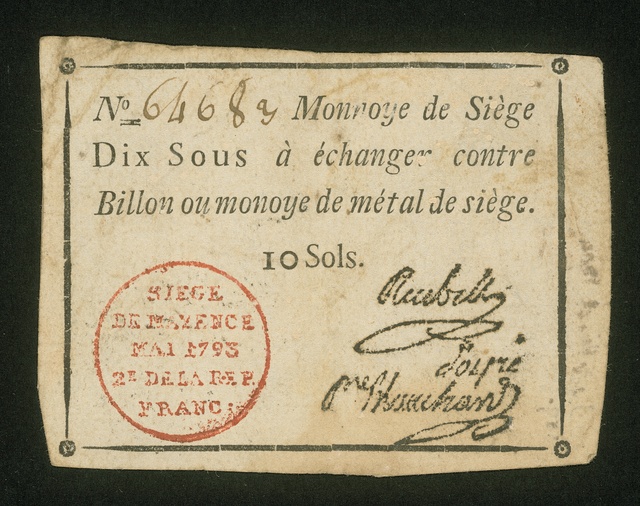 No. 64683 Monnoye de Siège
Dix Sous à échanger contre
Billon ou monoye de métal de siège.
10 Sols.
SIEGE
DE MAYENCE
MAI 1793
2E DE LA REP.
FRANC:
Reubell